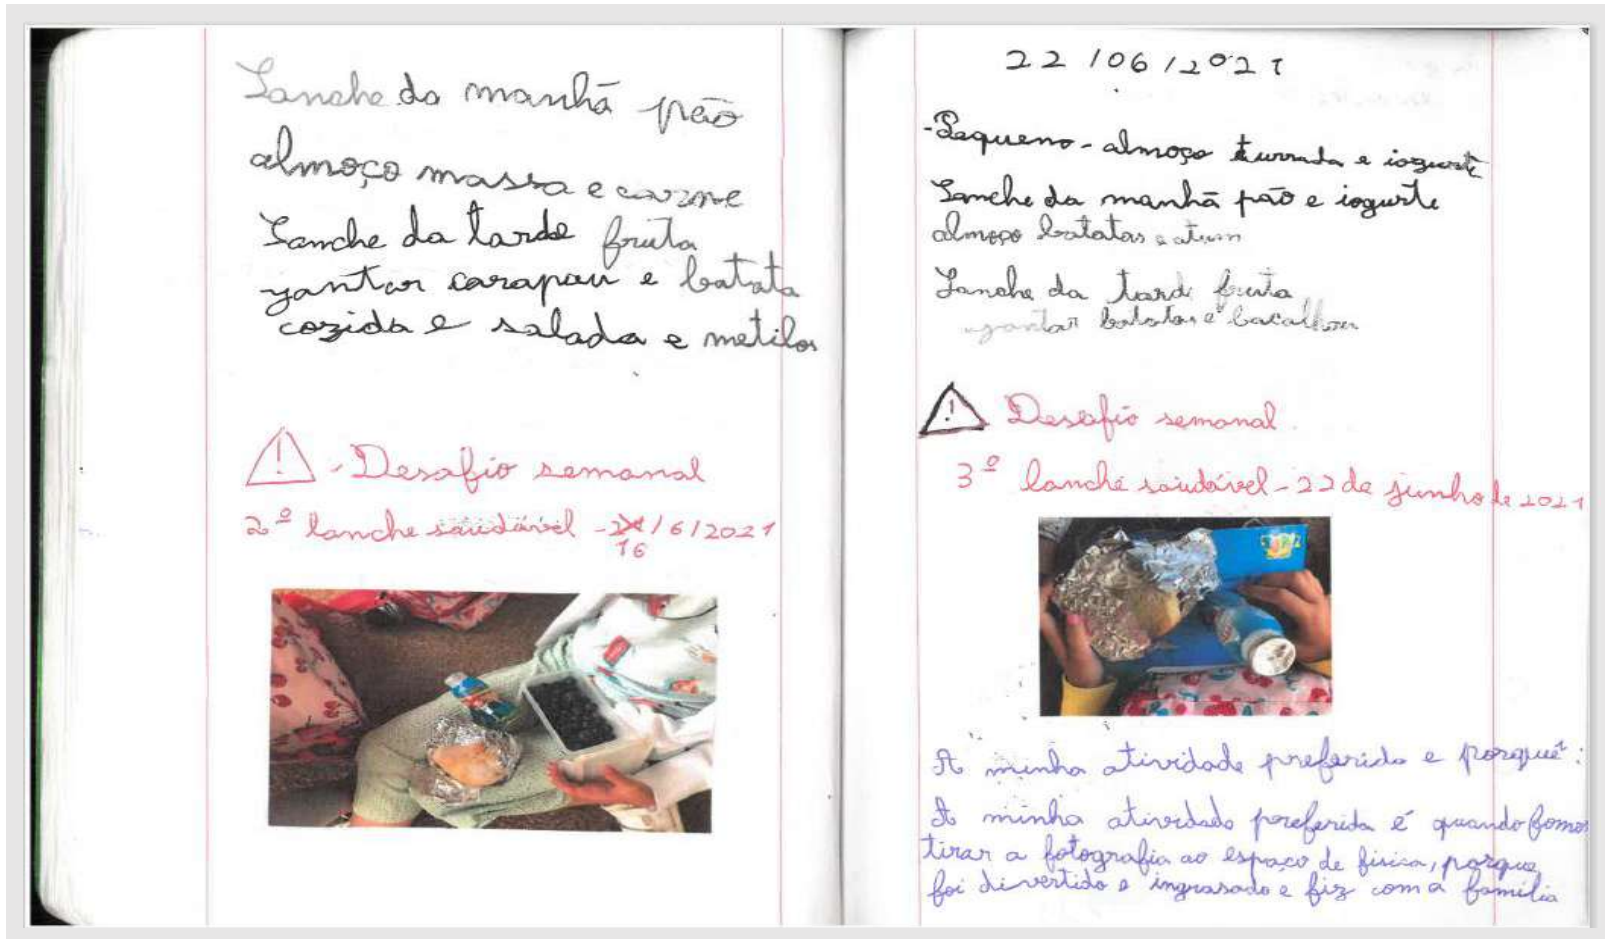 Lanche da manhã pão
almoço massa e carne
Lanche da tarde fruta
yantar carapau e batata
cozida e salada e metilos
! - Desafio semanal
2º lanche saudável - /6/2021
16
22/06/2021
-Pequeno-almoço turrada e iogurte
Lanche da manhã pão e iogurte
almoço batatas e atum
Lanche da tard fruta
yantar batatas e bacalhau
! Desafio semanal.
3º lanche saudável - 22 de junho de 2021
A minha atividade preferida e porquê:
A minha atividade preferida é quando fomos
tirar a fotografia ao espaço de fisica, porque
foi divertido e ingrasado e fiz com a família